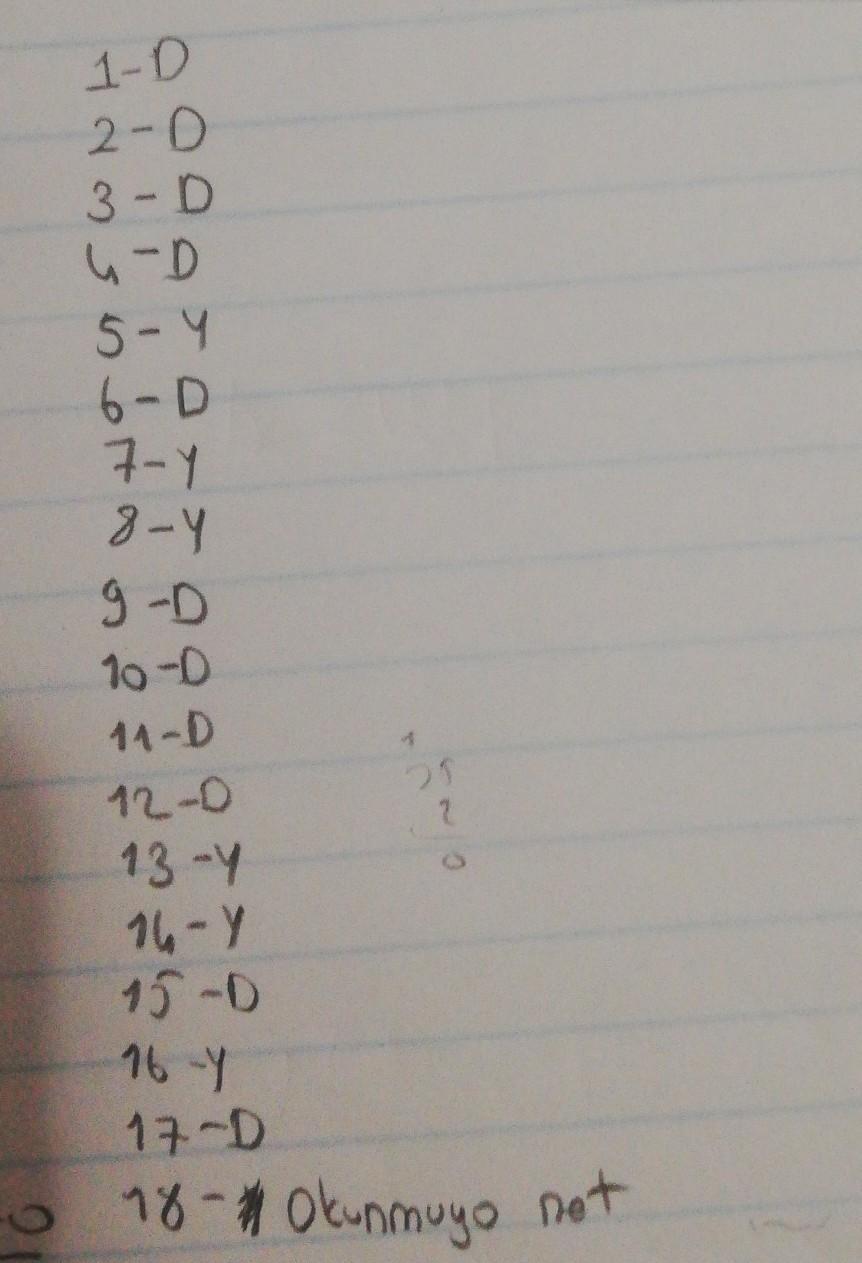 1-D
2-D
3-D
4-D
5-Y
6-D
7-Y
8-Y
9-D
10-D
11-D
12-D
13-Y
14-Y
15-D
16-Y
17-D
18- Okunmuyo net
1
25
2
0